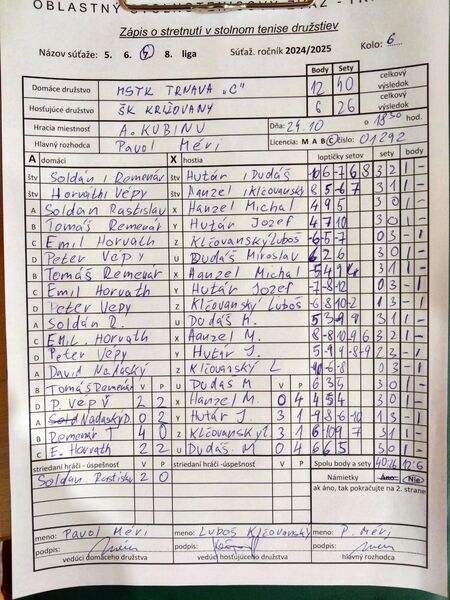 OBLASTNÝ STOLNOTENISOVÝ ZVÄZ - TR
Zápis o stretnutí v stolnom tenise družstiev
Názov súťaže: 5. 6. 7. 8. liga Súťaž. ročník 2024/2025 Kolo: 6
Body Sety
Domáce družstvo MSTK TRNAVA "C" 12 40 celkový výsledok
Hosťujúce družstvo ŠK KRIŽOVANY 6 26 celkový výsledok
Hracia miestnosť A. KUBINU Dňa: 24.10 o 18 30 hod.
Hlavný rozhodca Pavol Méri Licencia: M A B C 01292
A domáci X hostia loptičky setov sety body
štv Soldán i Remenár štv Hutár i Dudáš 3 2 1 -
štv Horváth i Vépy štv Hanzel i Klčovanský 8 5 -6 7 3 1 1 -
A Soldan Rastislav X Hanzel Michal 4 9 5 3 0 1 -
B Tomáš Remenár Y Hutár Jozef 4 7 10 3 0 1 -
C Emil Horvath Z Klčovanský Luboš -6 -5 -7 0 3 - 1
D Peter Vépy U Dudáš Miroslav 6 2 6 3 0 1 -
B Tomáš Remenár X Hanzel Michal 3 1 1 -
C Emil Horvath Y Hutár Jozef -7 -8 -12 0 3 - 1
D Peter Vepy Z Klčovanský Luboš -6 8 -10 -2 1 3 - 1
A Soldán R. U Dudáš M. 3 1 1 -
C Emil. Horvath X Hanzel M. 8 -8 -10 9 6 3 2 1 -
D Peter Vépy Y Hutár J. 5 -9 9 -8 -9 2 3 - 1
A David Nadaský Z Klčovanský L -10 -6 -8 0 3 - 1
B Tomáš Remenár U Dudáš M 6 3 5 3 0 1 -
D P. Vépy 2 2 X Hanzel M. 0 4 4 5 4 3 0 1 -
A Nadaský D. 0 2 Y Hutár J 3 1 -9 8 -6 -10 1 3 - 1
B Remenár T 4 0 Z Klčovanský L. 3 1 3 1 1 -
C E. Horváth 2 2 U Dudáš M 0 4 6 6 5 3 0 1 -
V P V P
striedaní hráči - úspešnosť striedaní hráči - úspešnosť Spolu body a sety 40:26 12:6
Soldán Rastislav 2 0 Námietky Áno - Nie
ak áno, tak pokračujte na 2. strane
meno: Pavol Méri meno: Luboš Klčovanský meno: P. Méri
podpis: podpis: podpis:
vedúci domáceho družstva vedúci hosťujúceho družstva hlavný rozhodca